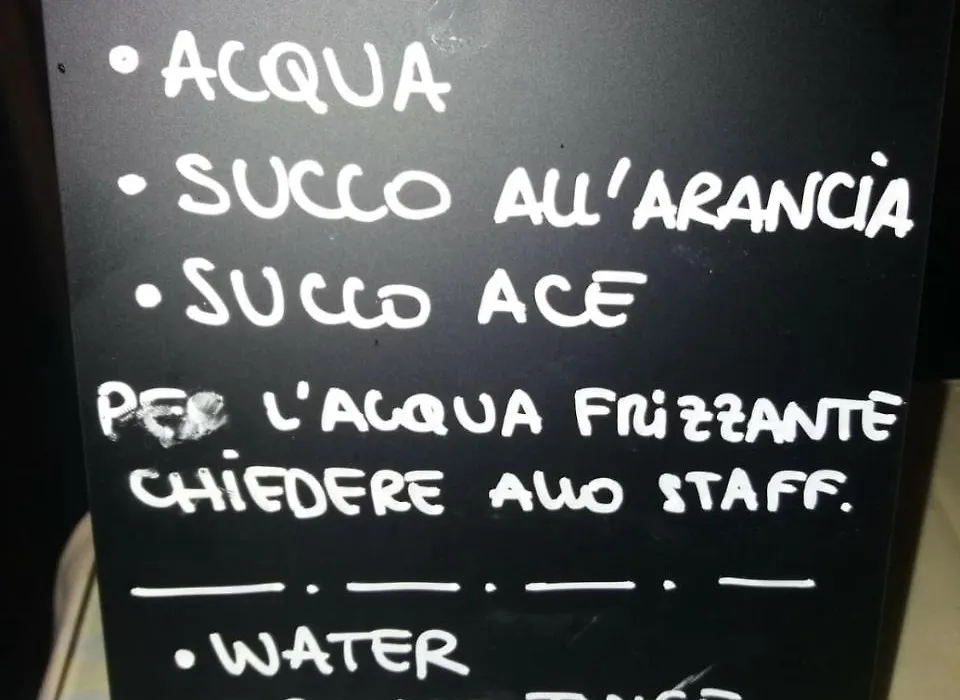 • ACQUA
• SUCCO ALL'ARANCIA
• SUCCO ACE
PER L'ACQUA FRIZZANTE
CHIEDERE ALLO STAFF.
• WATER